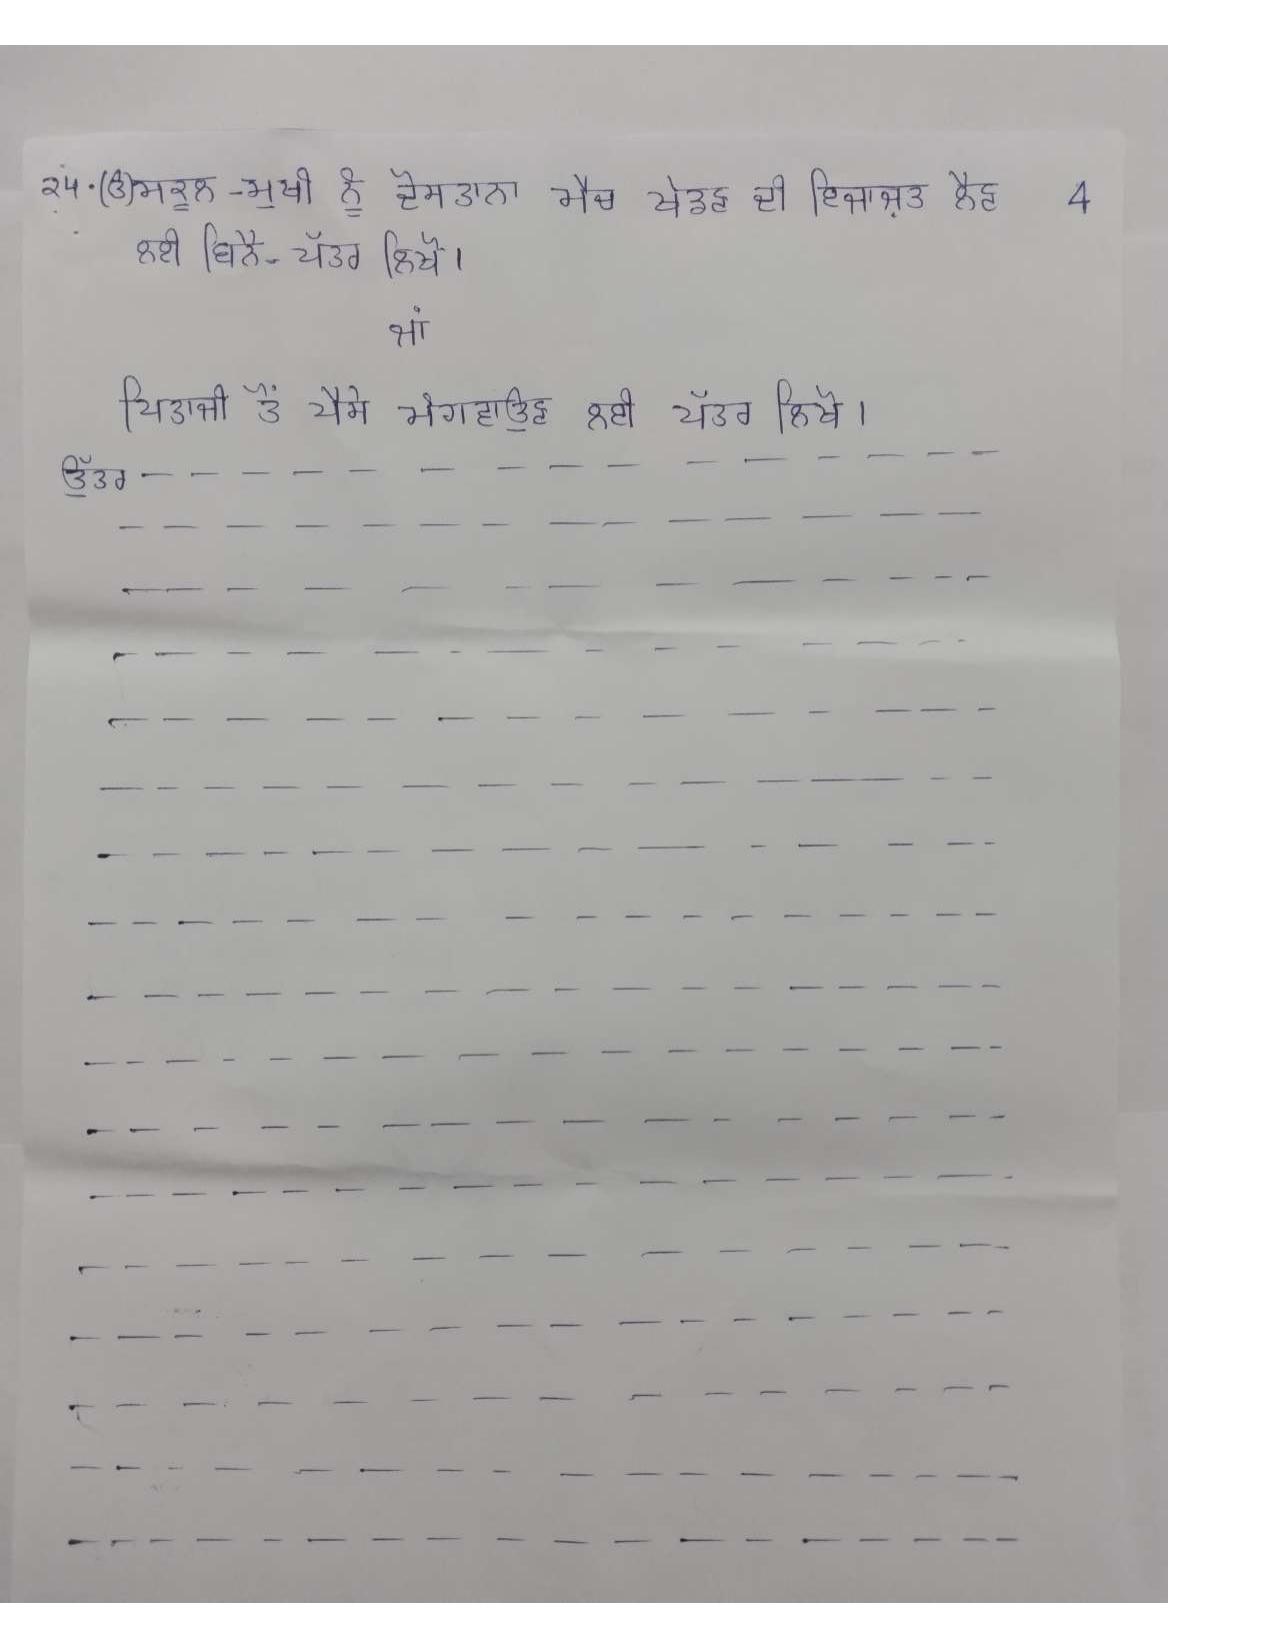 ੨੫.(ੳ)ਸਕੂਲ-ਮੁਖੀ ਨੂੰ ਦੋਸਤਾਨਾ ਮੈਚ ਖੇਡਣ ਦੀ ਇਜਾਜ਼ਤ ਲੈਣ 4
ਲਈ ਬਿਨੈ-ਪੱਤਰ ਲਿਖੋ।
ਜਾਂ
ਪਿਤਾਜੀ ਤੋਂ ਪੈਸੇ ਮੰਗਵਾਉਣ ਲਈ ਪੱਤਰ ਲਿਖੋ।
ਉੱਤਰ